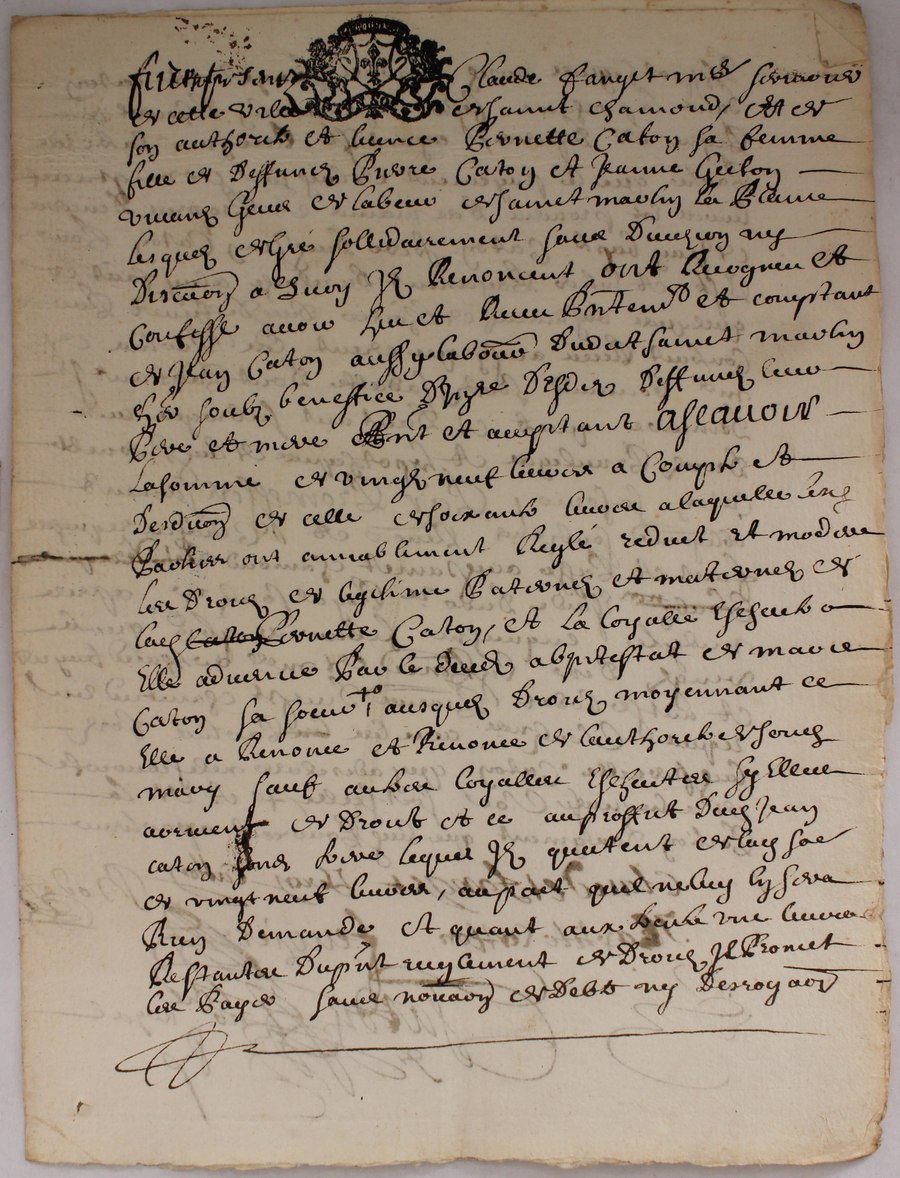 furent presens Claude fanget mre serrurier
de cette ville de saint chamond, et de
son authorité et licence Pernette Caton sa femme
fille de Deffunctz Pierre Caton et Jeanne
vivants Gens de labeur de saint martin la Plaine
Lesquelz de gré sollidairement sans Division ny
Discution a quoy Ilz Renoncent ont Recogneu et
Confesse avoir Eu et Receu et comptant
de Jean Caton aussy laboureur Dudit saint martin
soubz benefice Deffunctz leur
Pere et mere et comptant Ascavoir
La somme de vingt neuf livres a Compte et
Desduction de celle de soixante livres a laquelle les
Parties ont amiablement Reglé reduit et modere
les Droitz de legitime Paternelz et maternelz de
ladite Pernette Caton, et la loyalle Escheute a
Elle advenue Par le deces abintestat de marie
Caton sa soeur ausquelz Droitz moyennant ce
Elle a Renonce et Renonce de lauthorité de sondit
mary sauf autre loyalles Escheutes sy Elles
arrivent de Droit et ce au proffit Dudit Jean
caton frere lequel Ilz quittent de ladite
de vingt neuf livres, au pact quil ne luy en sera
Rien Demande et quant aux trente une livres
Restantes Du present reiglement de Droitz Il Promet
les Payer sans novation de Debte ny Desrogation